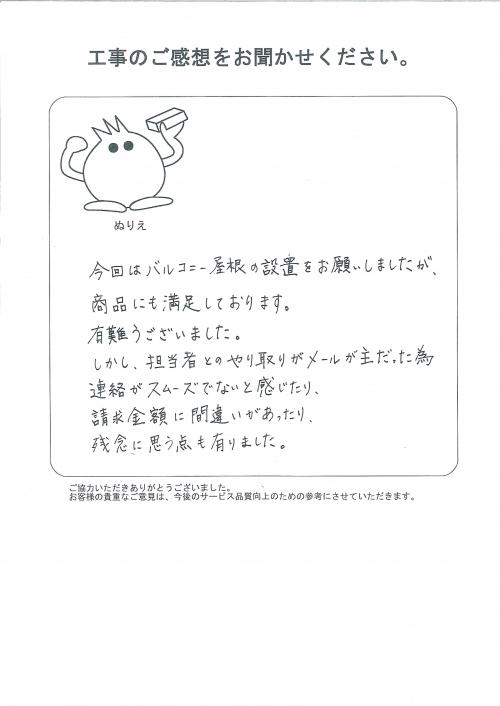 工事のご感想をお聞かせください。
ぬりえ
今回はバルコニー屋根の設置をお願いしましたが、
商品にも満足しております。
有難うございました。
しかし、担当者とのやり取りがメールが主だった為
連絡がスムーズでないと感じたり、
請求金額に間違いがあったり、
残念に思う点も有りました。
ご協力いただきありがとうございました。
お客様の貴重なご意見は、今後のサービス品質向上のための参考にさせていただきます。